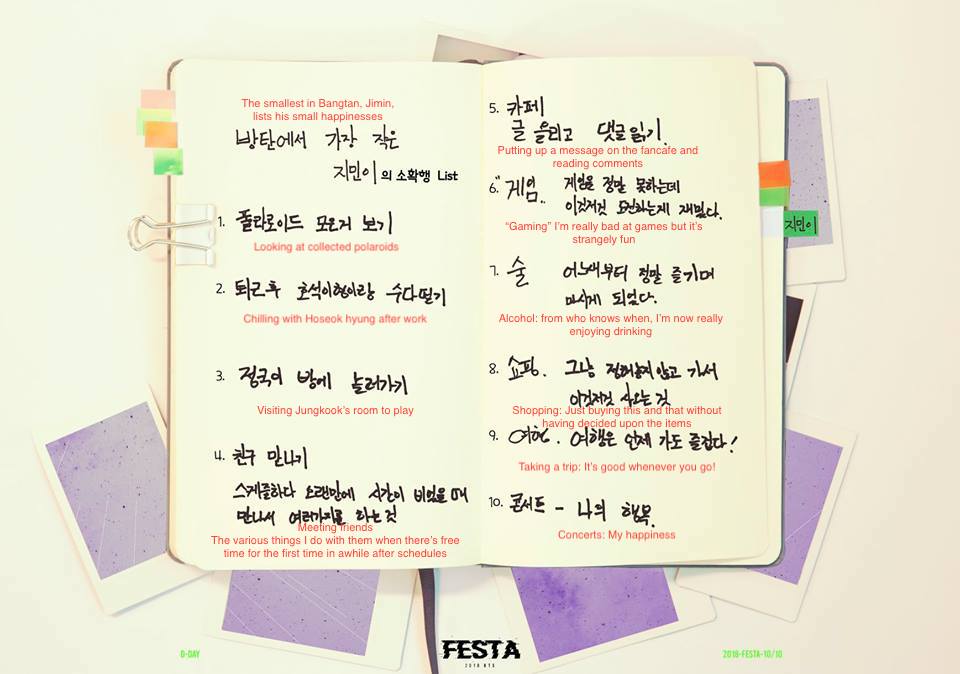 The smallest in Bangtan, Jimin,
lists his small happinesses
방탄에서 가장 작은
지민이의 소확행 List
1. 폴라로이드 모은거 보기
Looking at collected polaroids
2. 퇴근후 호석이형이랑 수다떨기
Chilling with Hoseok hyung after work
3. 정국이 방에 놀러가기
Visiting Jungkook's room to play
4. 친구 만나기
스케줄하다 오랜만에 시간이 비었을 때
만나서 여러가지를 하는 것
Meeting friends
The various things I do with them when there's free
time for the first time in awhile after schedules
5. 카페
글 올리고 댓글 읽기.
Putting up a message on the fancafe and
reading comments
6. "게임.. 게임을 정말 못하는데
이것저것 도전하는게 재밌다.
"Gaming" I'm really bad at games but it's
strangely fun
7. 술 어느새부터 정말 즐기며
마시게 되었다.
Alcohol: from who knows when, I'm now really
enjoying drinking
8. 쇼핑. 그냥 정해놓지 않고 가서
이것저것 사오는 것
Shopping: Just buying this and that without
having decided upon the items
9. 여행. 여행은 언제 가도 즐겁다!
Taking a trip: It's good whenever you go!
10. 콘서트 - 나의 행복.
Concerts: My happiness
지민이
D-DAY
FESTA
2018 BTS
2018-FESTA-10/10